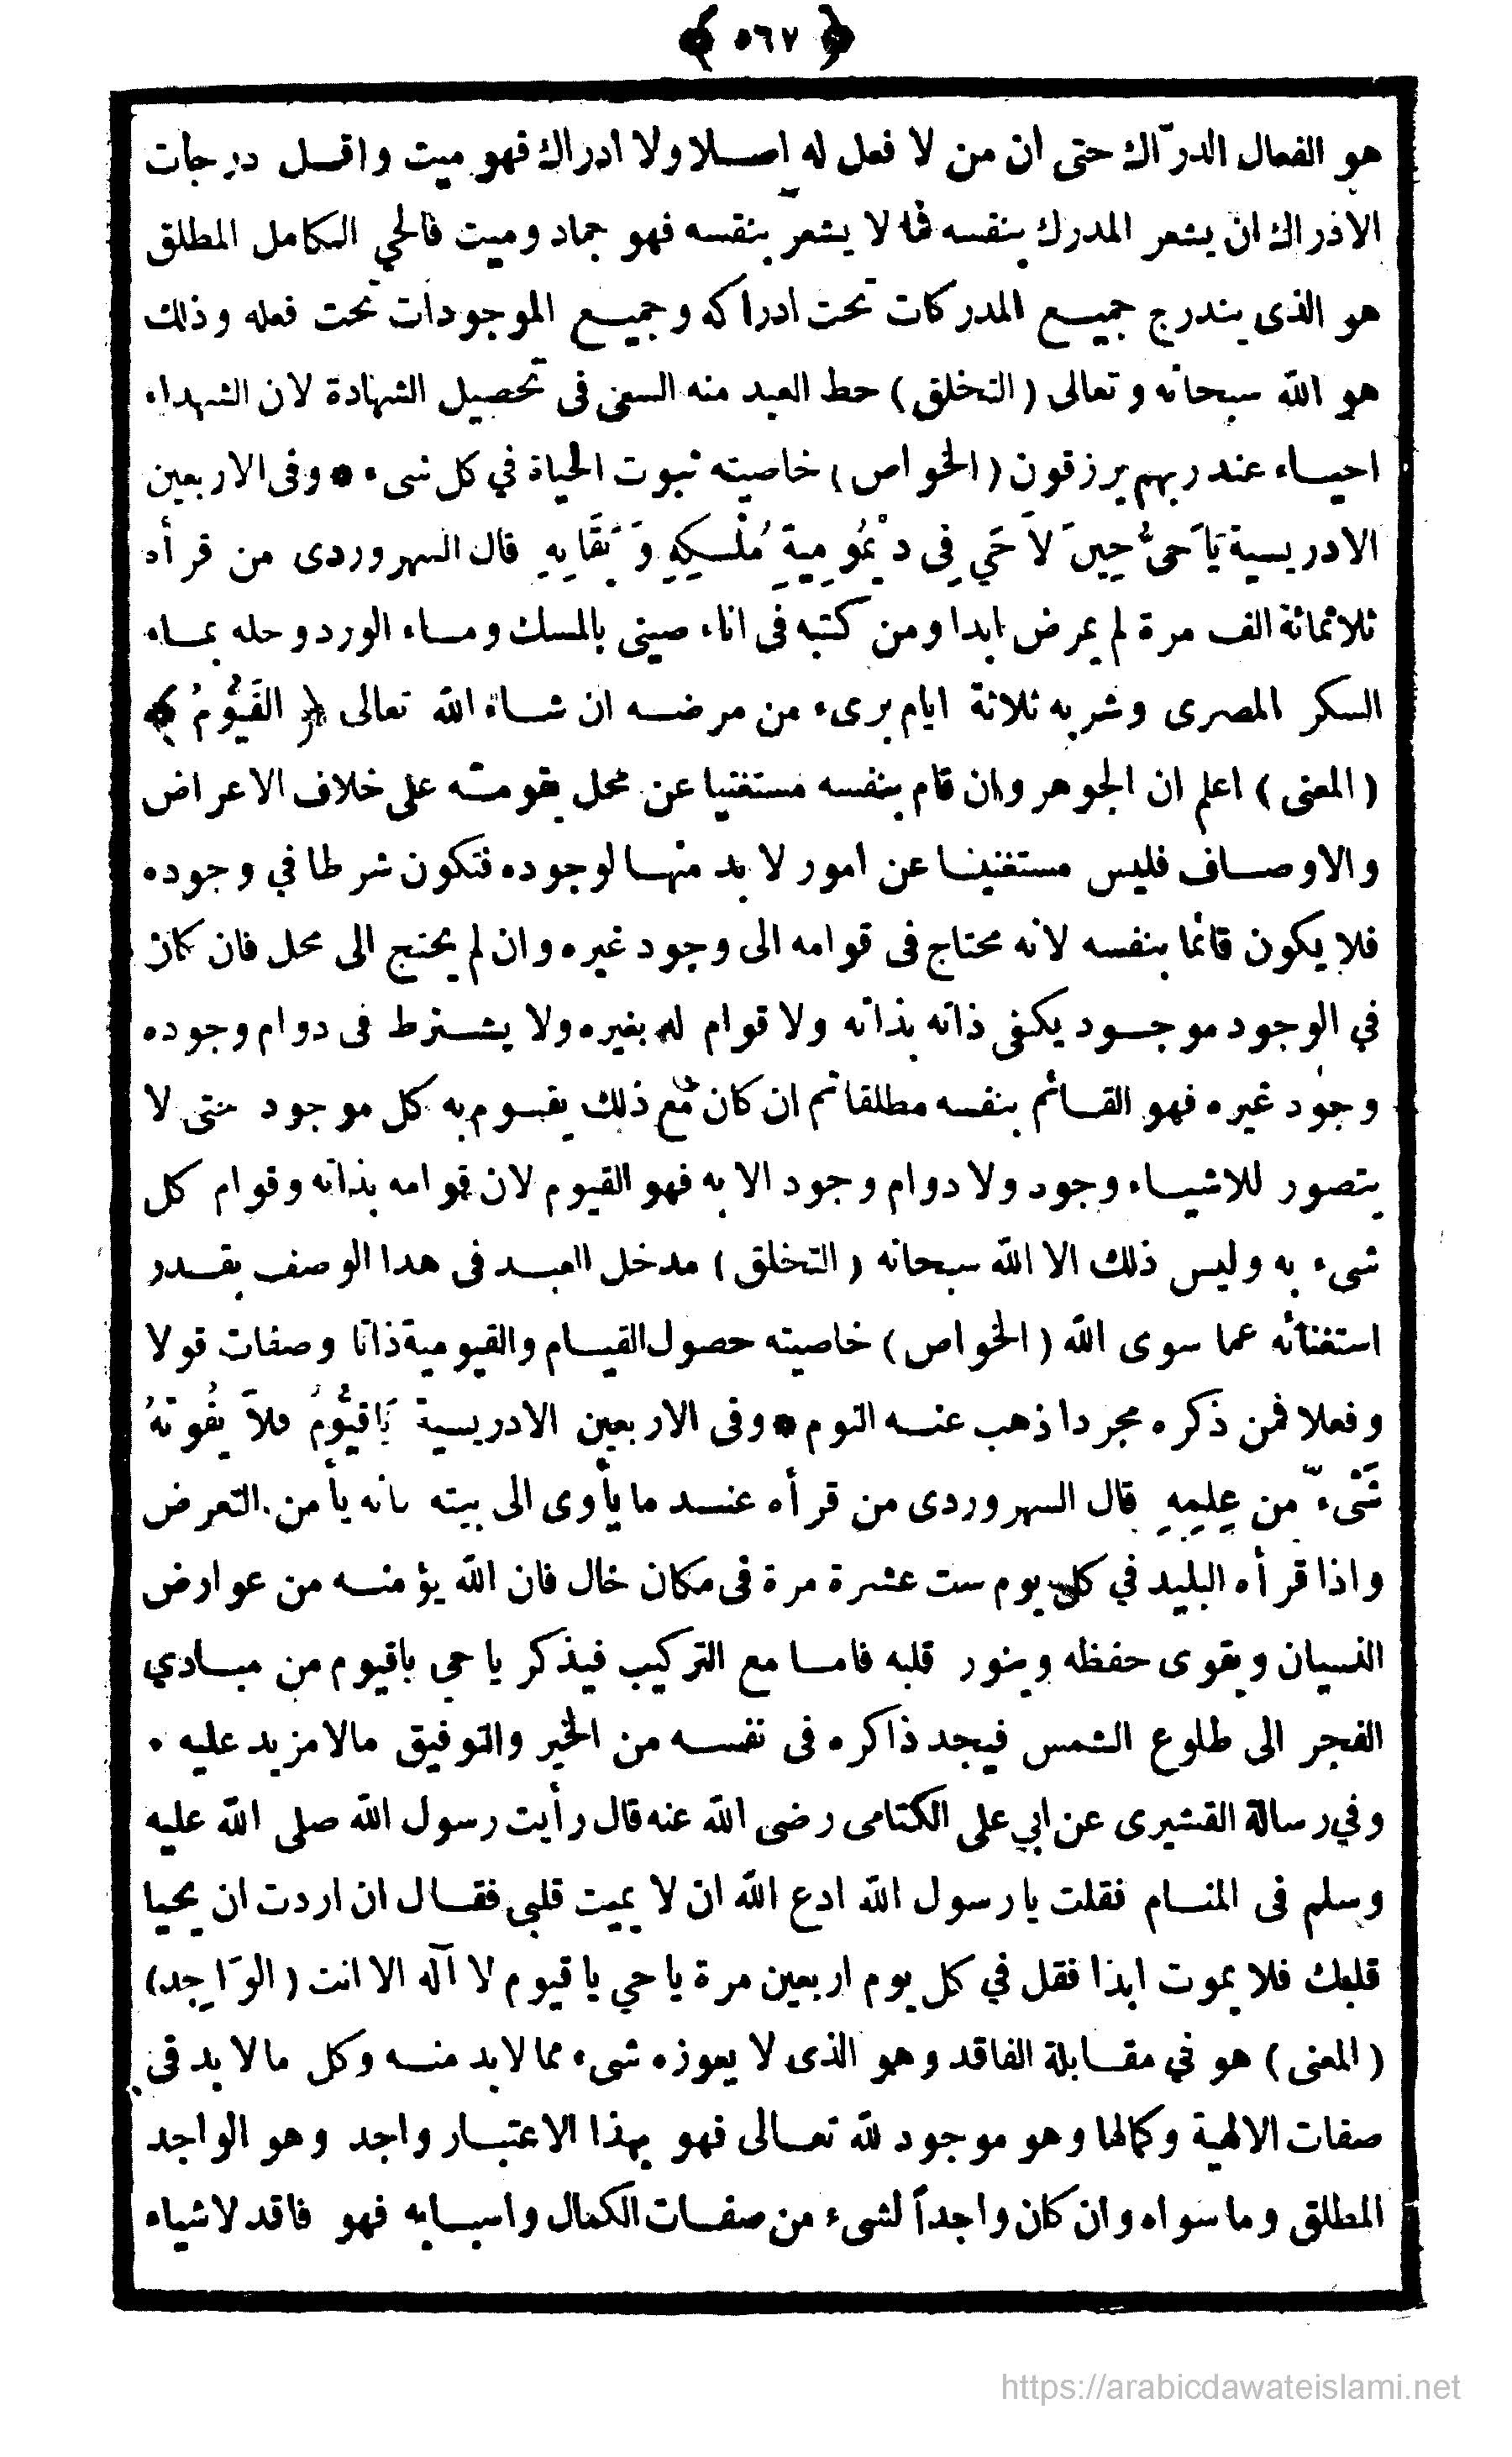 ﴿ ٥٦٧ ﴾
هو الفعال الدرّاك حتى ان من لا فعل له اصلا ولا ادراك فهو ميت واقل درجات
الادراك ان يشعر المدرك بنفسه فما لا يشعر بنفسه فهو جماد وميت فالحي الكامل المطلق
هو الذى يندرج جميع المدركات تحت ادراكه وجميع الموجودات تحت فعله وذلك
هو الله سبحانه وتعالى (التخلق) حظ العبد منه السعى فى تحصيل الشهادة لان الشهداء
احياء عند ربهم يرزقون (الخواص) خاصيته ثبوت الحياة في كل شىء * وفى الاربعين
الادريسية يَا حَىُّ حِينَ لاَ حَيَ فِى دَيْمُومِيةِ مُلْكِهِ وَبَقَايِهِ قال السهروردى من قرأه
ثلاثمائة الف مرة لم يمرض ابدا ومن كتبه فى اناء صينى بالمسك وماء الورد وحله بماء
السكر المصرى وشربه ثلاثة ايام برىء من مرضه ان شاء الله تعالى ﴿ القَيُّومُ ﴾
(المعنى) اعلم ان الجوهر وان قام بنفسه مستغنيا عن محل يقومه على خلاف الاعراض
والاوصاف فليس مستغنيا عن امور لا بد منها لوجوده فتكون شرطا في وجوده
فلا يكون قائما بنفسه لانه محتاج فى قوامه الى وجود غيره وان لم يحتج الى محل فان كان
في الوجود موجود يكفى ذاته بذاته ولا قوام له بغيره ولا يشترط فى دوام وجوده
وجود غيره فهو القائم بنفسه مطلقا ثم ان كان مع ذلك يقوم به كل موجود حتى لا
يتصور للاشياء وجود ولا دوام وجود الا به فهو القيوم لان قوامه بذاته وقوام كل
شىء به وليس ذلك الا الله سبحانه (التخلق) مدخل العبد فى هدا الوصف بقدر
استغنائه عما سوى الله (الخواص) خاصيته حصول القيام والقيومية ذاتا وصفات قولا
وفعلا فمن ذكره مجردا ذهب عنه النوم * وفى الاربعين الادريسية يَاقَيُّومُ فلاَ يفُوتهُ
شَىْء مّن عِلمِهِ قال السهروردى من قرأه عند ما يأوى الى بيته بانه يأمن التعرض
واذا قرأه البليد في كل يوم ست عشرة مرة فى مكان خال فان الله يؤمنه من عوارض
النسيان ويقوى حفظه وينور قلبه فاما مع التركيب فيذكر يا حي ياقيوم من مبادي
الفجر الى طلوع الشمس فيجد ذاكره فى نفسه من الخير والتوفيق مالا مزيد عليه .
وفي رسالة القشيرى عن ابي على الكتامى رضى الله عنه قال رأيت رسول الله صلى الله عليه
وسلم فى المنام فقلت يا رسول الله ادع الله ان لا يميت قلبى فقال ان اردت ان يحيا
قلبك فلا يموت ابدا فقل في كل يوم اربعين مرة يا حي يا قيوم لا آله الا انت (الوَاجِد)
(المعنى) هو في مقابلة الفاقد وهو الذى لا يعوزه شىء مما لابد منه وكل مالا بد فى
صفات الالهية وكمالها وهو موجود لله تعالى فهو بهذا الاعتبار واجد وهو الواجد
المطلق وما سواه وان كان واجداً لشىء من صفات الكمال واسبابه فهو فاقد لاشياء
https://arabicdawateislami.net